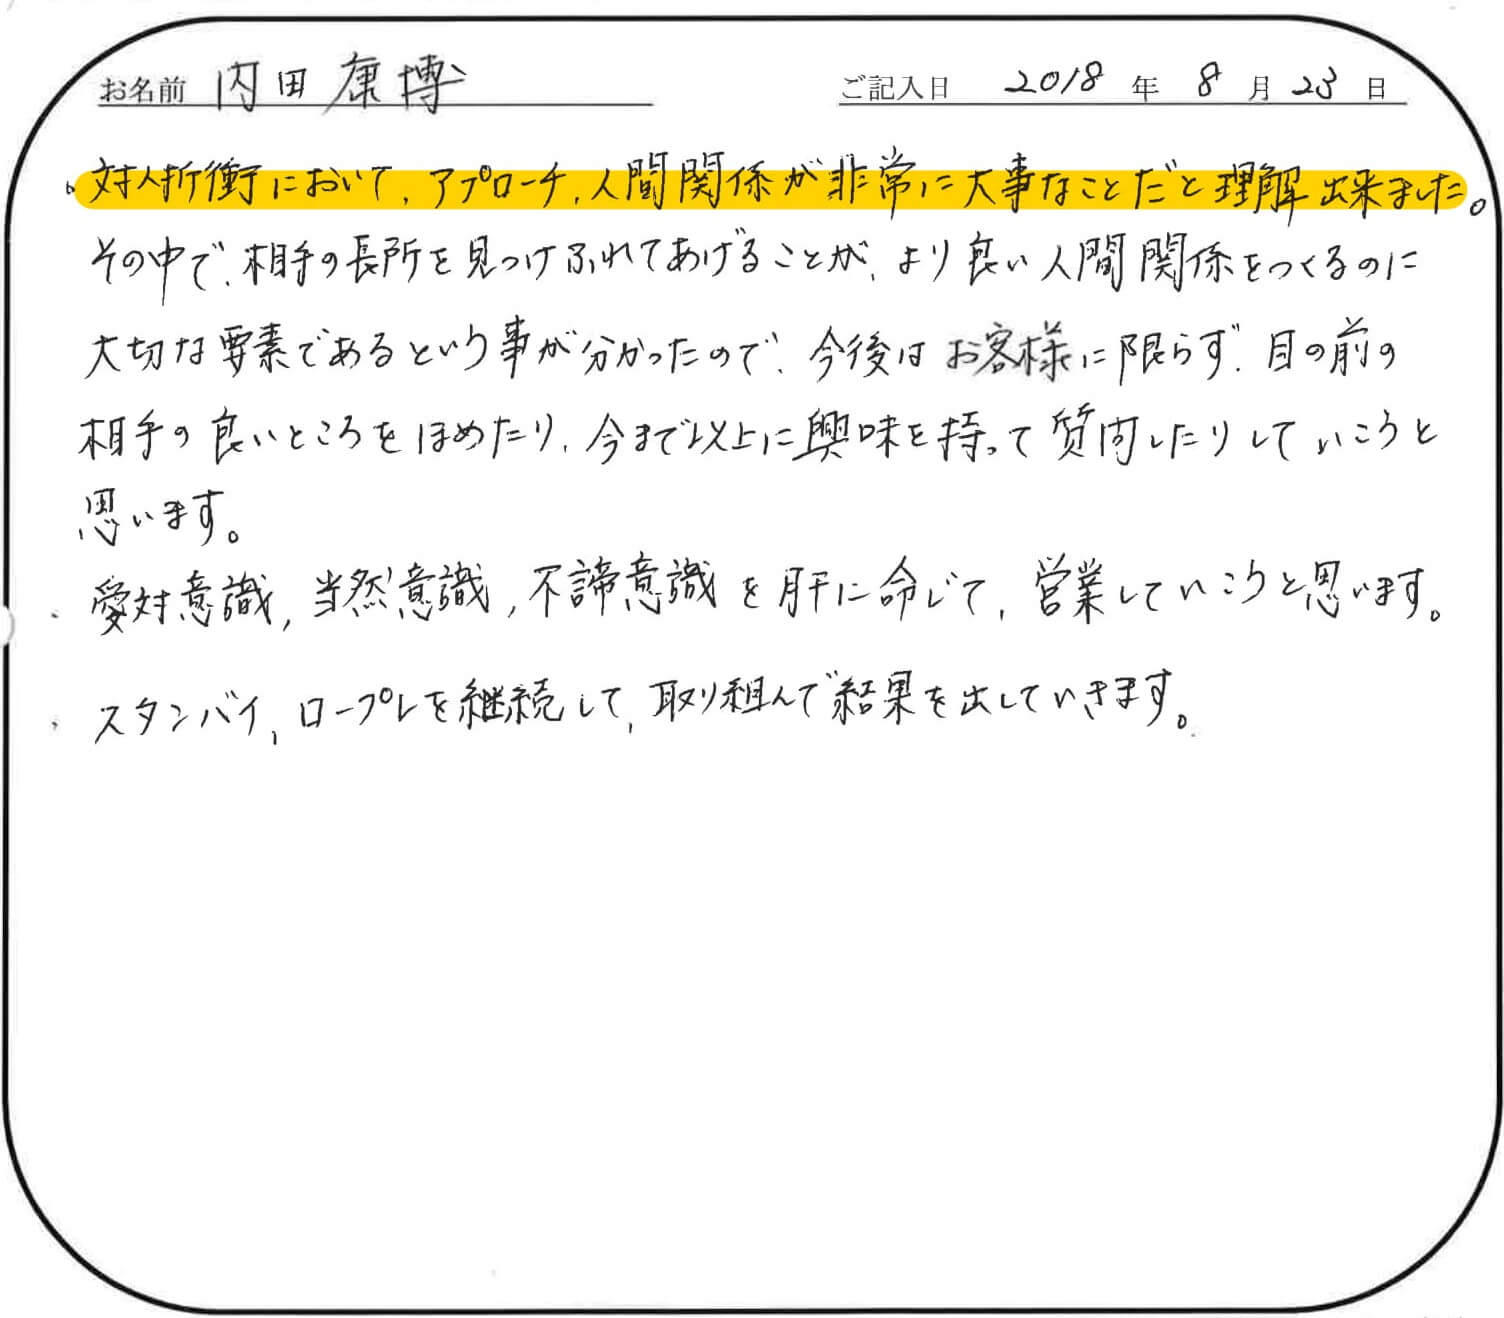 お名前 内田康博 ご記入日 2018 年 8 月 23 日
・対人折衝において、アプローチ、人間関係が非常に大事なことだと理解出来ました。
その中で、相手の長所を見つけふれてあげることが、より良い人間関係をつくるのに
大切な要素であるという事が分かったので、今後はお客様に限らず、目の前の
相手の良いところをほめたり、今まで以上に興味を持って質問したりしていこうと
思います。
・愛対意識、当然意識、不諦意識を肝に命じて、営業していこうと思います。
・スタンバイ、ロープレを継続して、取り組んで結果を出していきます。